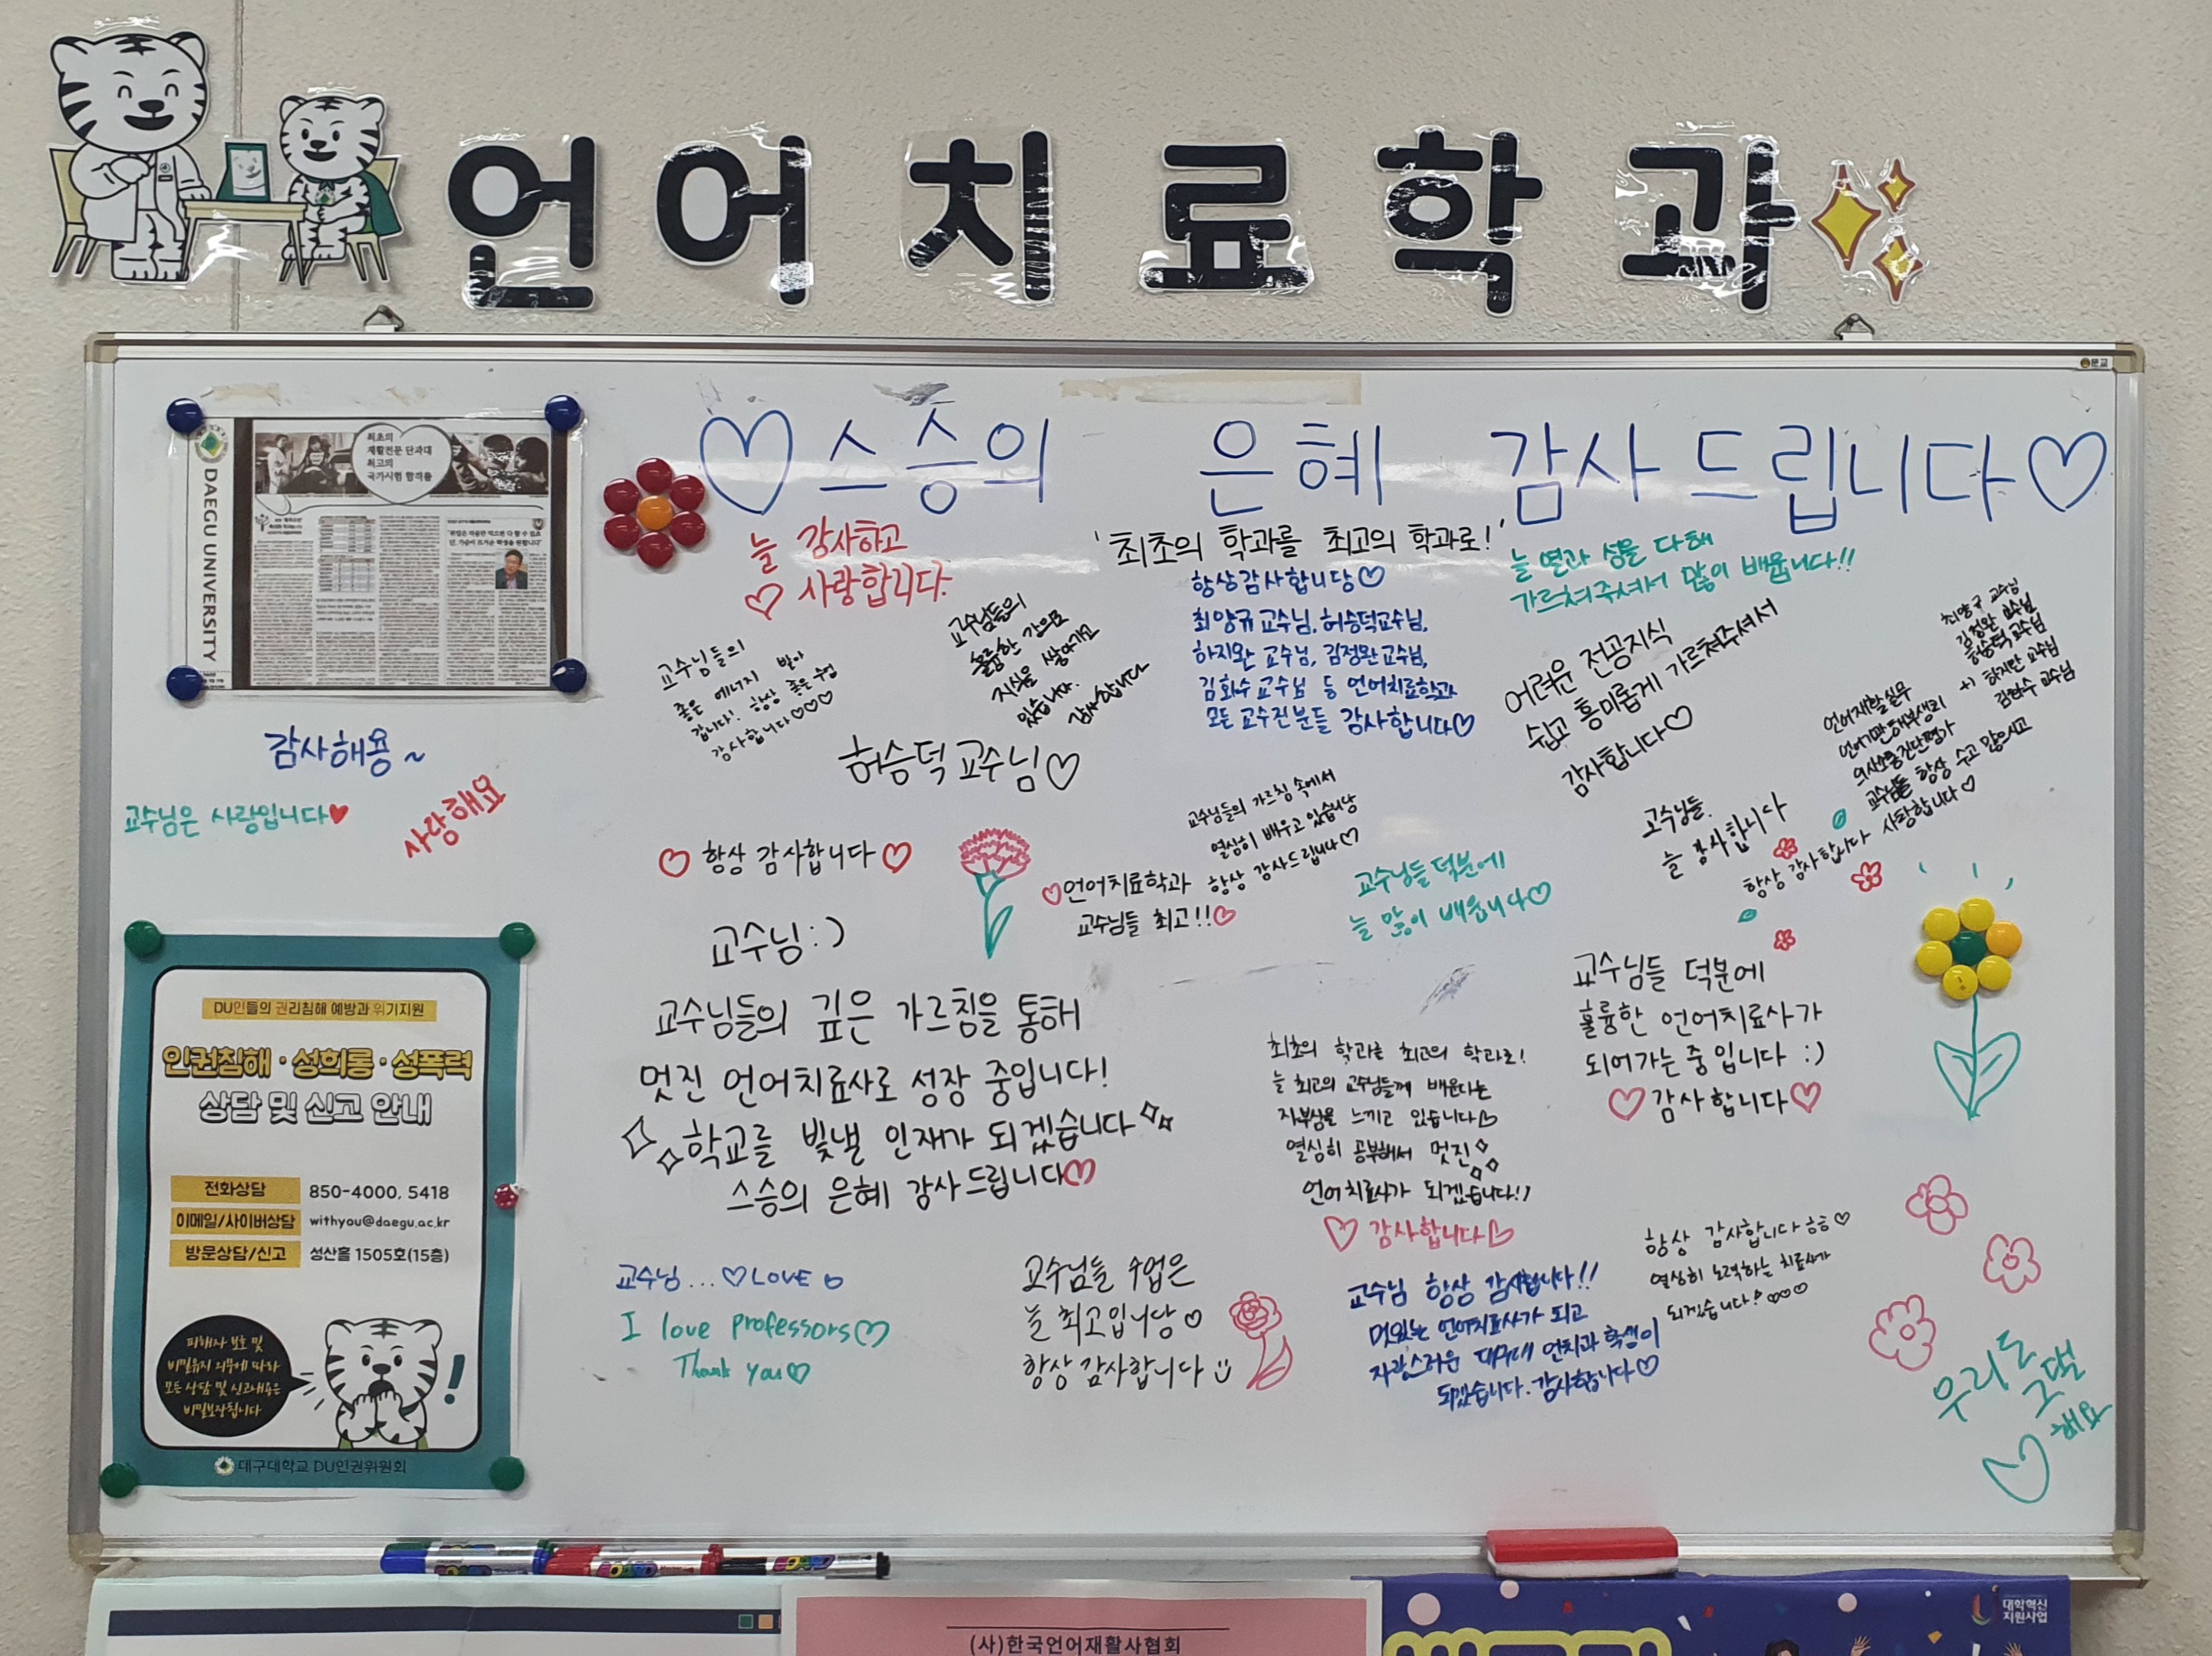 언어치료학과
문교
♡스승의 은혜 감사드립니다♡
DAEGU UNIVERSITY
최초의
재활전문 단과대
최고의
국가시험 합격율
감사해용~
교수님은 사랑입니다♥
사랑해요
늘 감사하고
♡ 사랑합니다.
교수님들의
좋은 에너지 받아
갑니다! 항상 좋은 수업
감사합니다♡♡♡
교수님들의
훌륭한 강의로
지식을 쌓아가고
있습니다.
감사합니다
허승덕 교수님♡
'최초의 학과를 최고의 학과로!'
항상감사합니당♡
최양규교수님, 허승덕교수님,
하지완 교수님, 김정완교수님,
김화수교수님 등 언어치료학과
모든 교수진분들 감사합니다♡
늘 열과 성을 다해
가르쳐주셔서 많이 배웁니다!!
어려운 전공지식
쉽고 흥미롭게 가르쳐주셔서
감사합니다♡
최양규 교수님
김정완 교수님
허승덕 교수님
+) 하지완 교수님
김화수 교수님
언어재활실무
언어기관해부생리
의사소통진단평가
교수님들 항상 수고 많으시고
항상 감사합니다 사랑합니다♡
교수님들.
늘 감사합니다
♡ 항상 감사합니다♡
교수님들의 가르침 속에서
열심히 배우고 있습니당
항상 감사드립니다♡
♡언어치료학과
교수님들 최고!!♡
교수님들 덕분에
늘 많이 배웁니다♡
교수님:)
교수님들의 깊은 가르침을 통해
멋진 언어치료사로 성장 중입니다!
학교를 빛낼 인재가 되겠습니다
스승의 은혜 감사드립니다♡
최초의 학과를 최고의 학과로!
늘 최고의 교수님들께 배운다는
자부심을 느끼고 있습니다♡
열심히 공부해서 멋진
언어치료사가 되겠습니다!)
♡ 감사합니다♡
교수님들 덕분에
훌륭한 언어치료사가
되어가는 중입니다 :)
♡감사합니다♡
교수님...♡LOVE♡
I love professors♡
Thank you♡
교수님들 수업은
늘 최고입니당♡
항상 감사합니다
교수님 항상 감사합니다!!
멋있는 언어치료사가 되고
자랑스러운 대구대 언치과 학생이
되겠습니다. 감사합니다♡
항상 감사합니다 ㅎㅎ♡
열심히 노력하는 치료사가
되겠습니다!♡♡♡
우리도
그댈
♡해요
DU인들의 권리침해 예방과 위기지원
인권침해·성희롱·성폭력
상담 및 신고 안내
전화상담 850-4000, 5418
이메일/사이버상담 withyou@daegu.ac.kr
방문상담/신고 성산홀 1505호(15층)
피해자 보호 및
비밀유지 의무에 따라
모든 상담 및 신고내용은
비밀보장됩니다
!
대구대학교 DU인권위원회
(사)한국언어재활사협회
대학혁신
지원사업